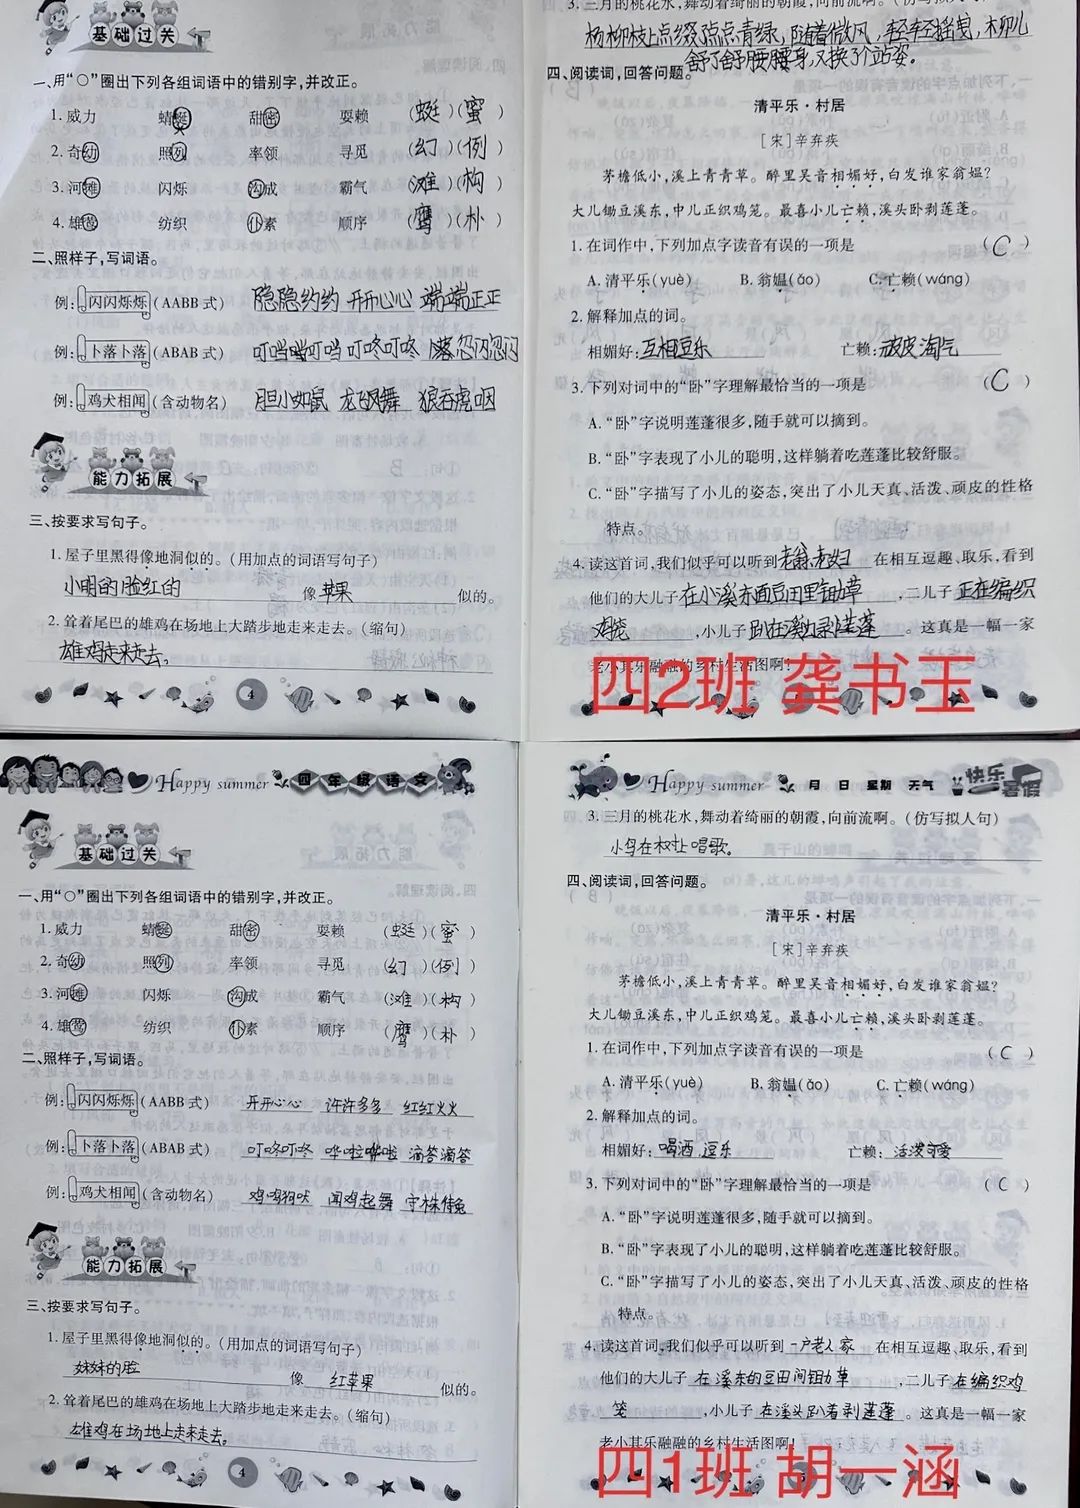 基础过关
一、用“○”圈出下列各组词语中的错别字,并改正。
1. 威力 蜻蜓 甜密 耍赖 (蜓)(蜜)
2. 奇幼 照列 率领 寻觅 (幻)(例)
3. 河摊 闪烁 沟成 霸气 (滩)(构)
4. 雄莺 纺织 仆素 顺序 (鹰)(朴)
二、照样子,写词语。
例: 闪闪烁烁 (AABB 式) 隐隐约约 开开心心 端端正正
例: 卜落卜落 (ABAB 式) 叮当叮当 叮咚叮咚 忽闪忽闪
例: 鸡犬相闻 (含动物名) 胆小如鼠 龙飞凤舞 狼吞虎咽
能力拓展
三、按要求写句子。
1. 屋子里黑得像地洞似的。(用加点的词语写句子)
小明的脸红的 像 苹果 似的。
2. 耸着尾巴的雄鸡在场地上大踏步地走来走去。(缩句)
雄鸡走来走去。
4
3. 三月的桃花水,舞动着绮丽的朝霞,向前流啊。(仿写拟人句)
杨柳枝上点缀点点青绿,随着微风,轻轻摇曳,木柳儿
舒了舒腰腰身,又换了个站姿。
四、阅读词,回答问题。
清平乐·村居
[宋]辛弃疾
茅檐低小,溪上青青草。醉里吴音相媚好,白发谁家翁媪?
大儿锄豆溪东,中儿正织鸡笼。最喜小儿亡赖,溪头卧剥莲蓬。
1. 在词作中,下列加点字读音有误的一项是 (C)
A. 清平乐(yuè) B. 翁媪(ǎo) C. 亡赖(wáng)
2. 解释加点的词。
相媚好: 互相逗乐 亡赖: 顽皮淘气
3. 下列对词中的“卧”字理解最恰当的一项是 (C)
A. “卧”字说明莲蓬很多,随手就可以摘到。
B. “卧”字表现了小儿的聪明,这样躺着吃莲蓬比较舒服。
C. “卧”字描写了小儿的姿态,突出了小儿天真、活泼、顽皮的性格
特点。
4. 读这首词,我们似乎可以听到 老翁老妇 在相互逗趣、取乐,看到
他们的大儿子 在小溪东面豆田里锄草 ,二儿子 正在编织
鸡笼 ,小儿子 趴在溪边剥莲蓬 。这真是一幅一家
老小其乐融融的乡村生活图啊!
四2班 龚书玉
Happy summer 四年级语文
基础过关
一、用“○”圈出下列各组词语中的错别字,并改正。
1. 威力 蜻蜓 甜密 耍赖 (蜓)(蜜)
2. 奇幼 照列 率领 寻觅 (幻)(例)
3. 河摊 闪烁 沟成 霸气 (滩)(构)
4. 雄莺 纺织 仆素 顺序 (鹰)(朴)
二、照样子,写词语。
例: 闪闪烁烁 (AABB 式) 开开心心 许许多多 红红火火
例: 卜落卜落 (ABAB 式) 叮咚叮咚 哗啦哗啦 滴答滴答
例: 鸡犬相闻 (含动物名) 鸡鸣狗吠 闻鸡起舞 守株待兔
能力拓展
三、按要求写句子。
1. 屋子里黑得像地洞似的。(用加点的词语写句子)
妹妹的脸 像 红苹果 似的。
2. 耸着尾巴的雄鸡在场地上大踏步地走来走去。(缩句)
雄鸡在场地上走来走去。
4
Happy summer 月 日 星期 天气 快乐暑假
3. 三月的桃花水,舞动着绮丽的朝霞,向前流啊。(仿写拟人句)
小鸟在枝头唱歌。
四、阅读词,回答问题。
清平乐·村居
[宋]辛弃疾
茅檐低小,溪上青青草。醉里吴音相媚好,白发谁家翁媪?
大儿锄豆溪东,中儿正织鸡笼。最喜小儿亡赖,溪头卧剥莲蓬。
1. 在词作中,下列加点字读音有误的一项是 (C)
A. 清平乐(yuè) B. 翁媪(ǎo) C. 亡赖(wáng)
2. 解释加点的词。
相媚好: 喝酒逗乐 亡赖: 活泼可爱
3. 下列对词中的“卧”字理解最恰当的一项是 (C)
A. “卧”字说明莲蓬很多,随手就可以摘到。
B. “卧”字表现了小儿的聪明,这样躺着吃莲蓬比较舒服。
C. “卧”字描写了小儿的姿态,突出了小儿天真、活泼、顽皮的性格
特点。
4. 读这首词,我们似乎可以听到 一户老人家 在相互逗趣、取乐,看到
他们的大儿子 在溪东的豆田间锄草 ,二儿子 在编织鸡
笼 ,小儿子 在溪头趴着剥莲蓬 。这真是一幅一家
老小其乐融融的乡村生活图啊!
四1班 胡一涵